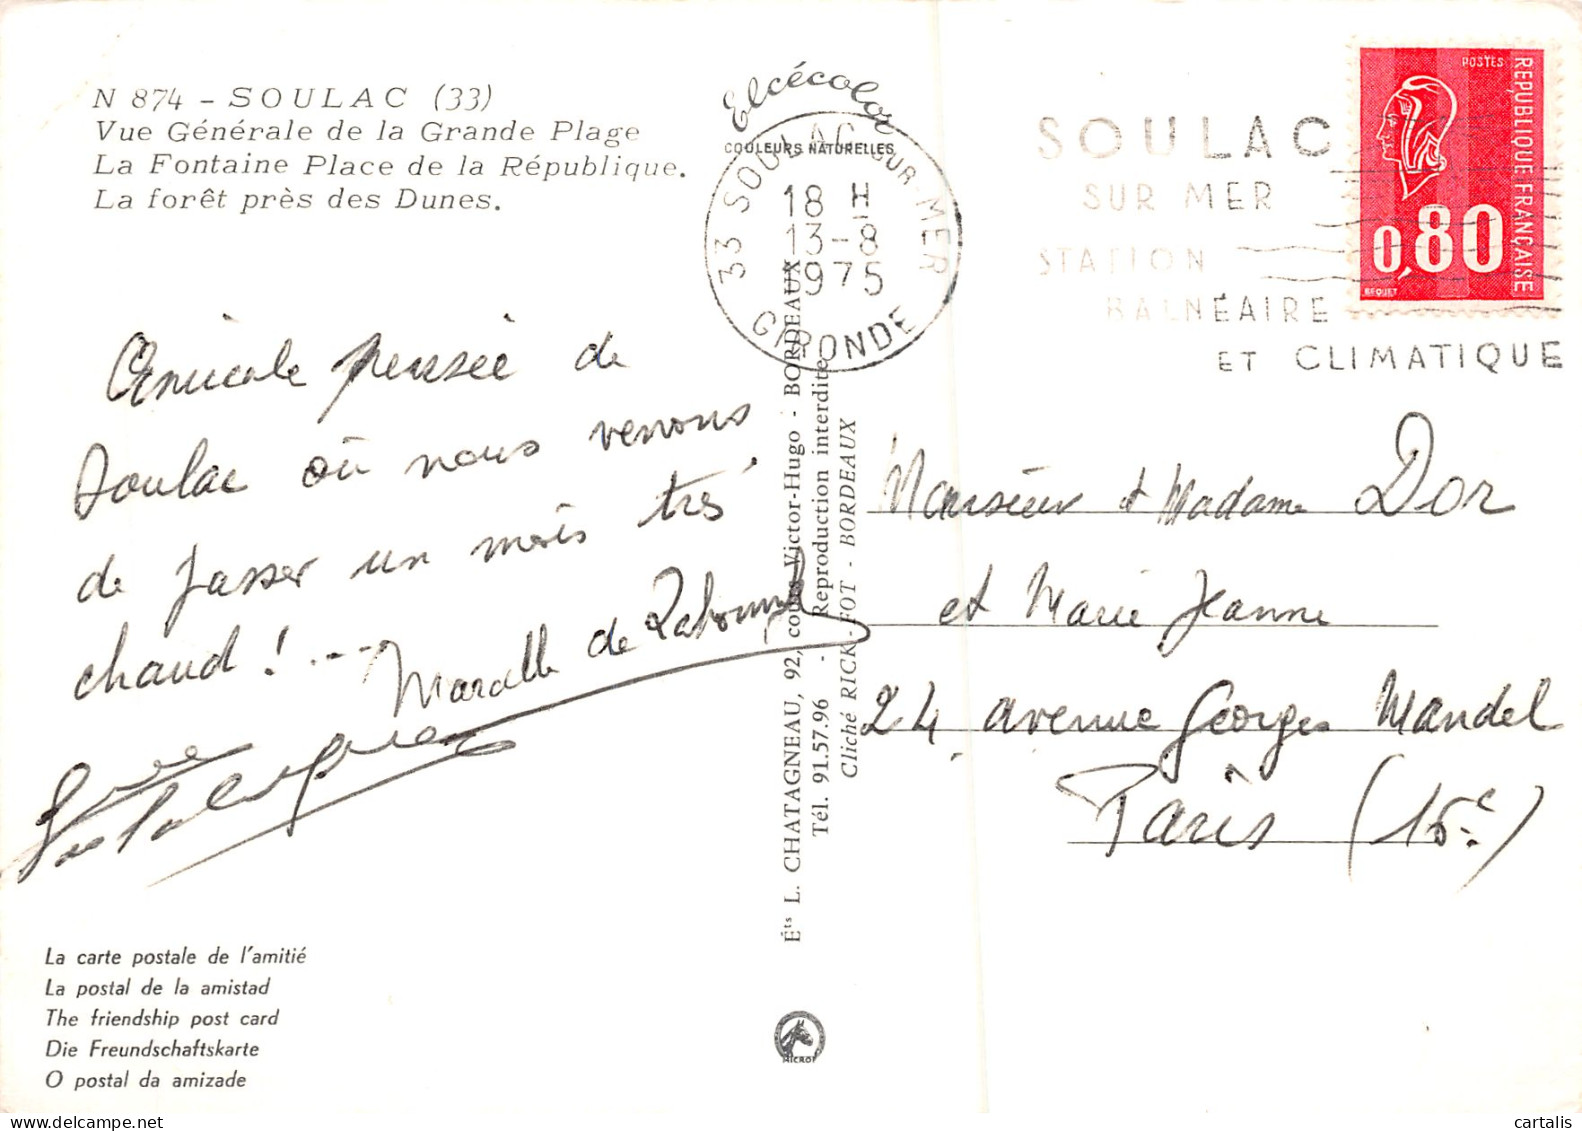 N 874 - SOULAC (33)
Vue Générale de la Grande Plage
La Fontaine Place de la République.
La forêt près des Dunes.
Elcécolor
COULEURS NATURELLES
33 SOULAC-SUR-MER
18 H
13-8
1975
GIRONDE
SOULAC
SUR MER
STATION
BALNÉAIRE
ET CLIMATIQUE
POSTES
REPUBLIQUE FRANÇAISE
0,80
BEQUET
Amicale pensée de
Soulac où nous venons
de passer un mois très
chaud ! ...
de
Monsieur et Madame Dor
et Marie Jeanne
24 avenue Georges Mandel
Paris (16e)
Éts L. CHATAGNEAU, 92, cours Victor-Hugo - BORDEAUX
Tél. 91.57.96 - Reproduction interdite
Cliché RICK-FOT - BORDEAUX
La carte postale de l'amitié
La postal de la amistad
The friendship post card
Die Freundschaftskarte
O postal da amizade
cartalis